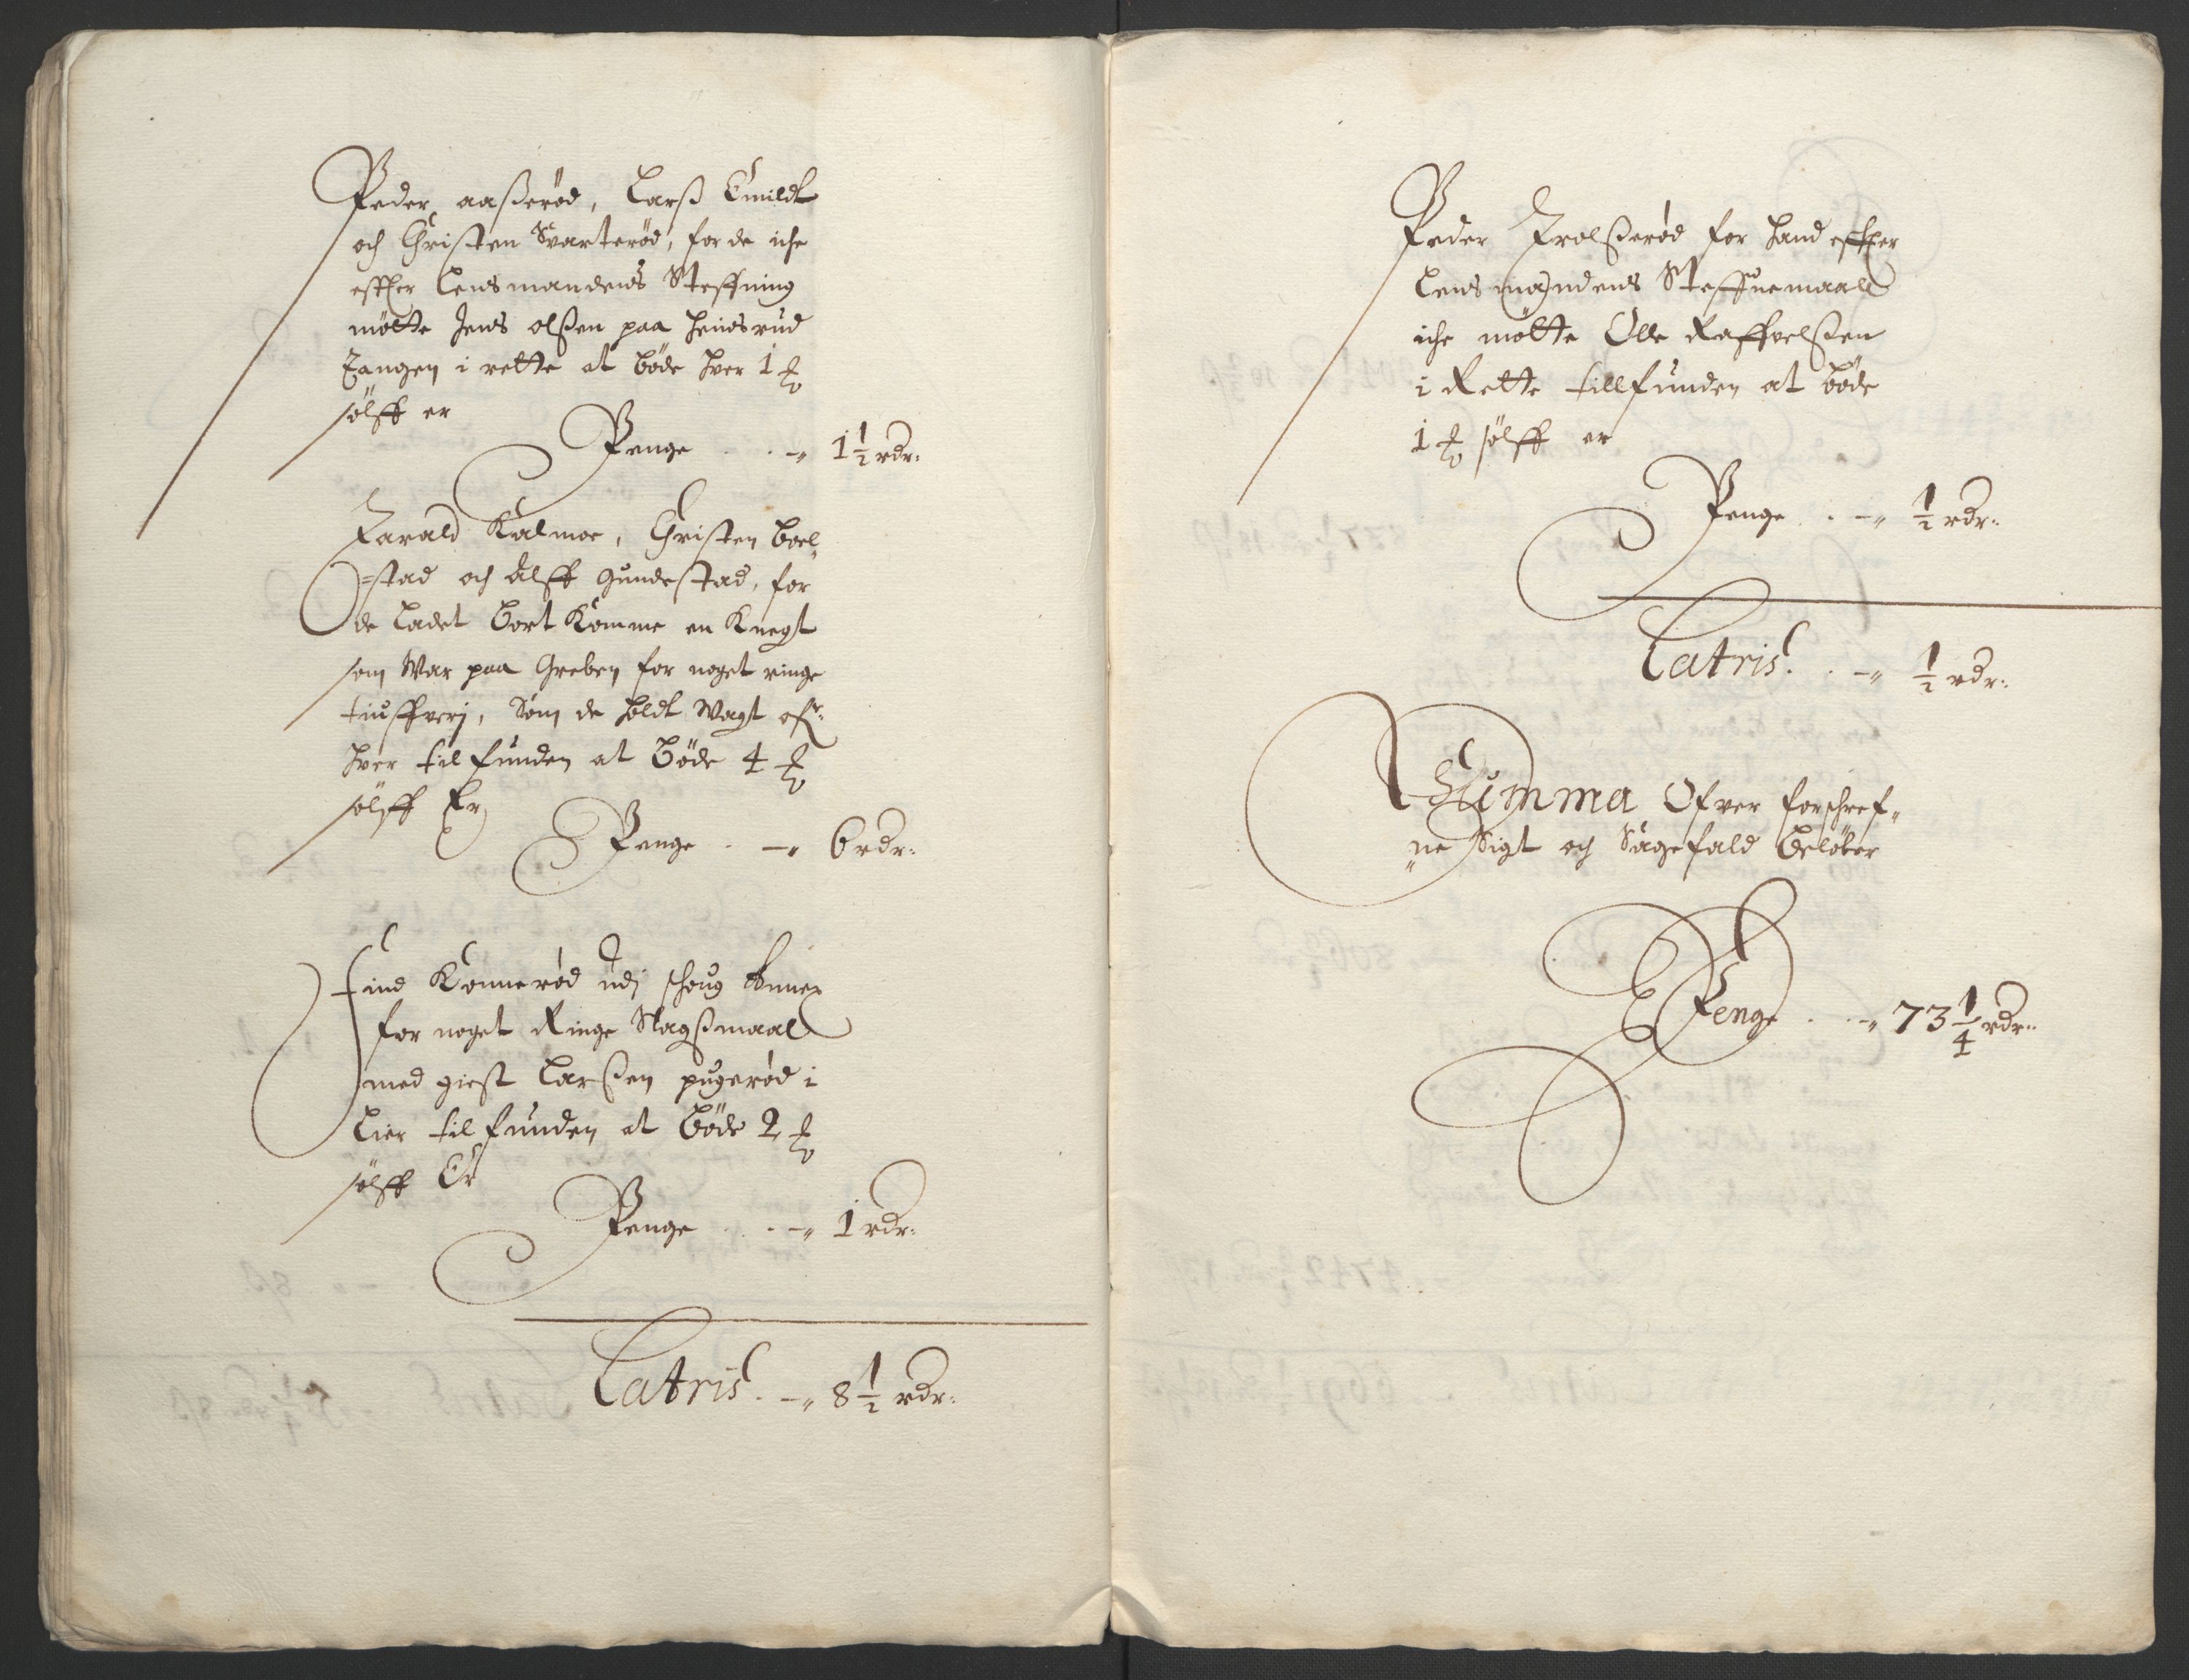 Peder aaßerød, Larß Emildt
och Christen Svarterød, for de iche
effter Lensmandens Steffning
mötte Jens olßen paa
Tangen i rette at böde hver 1 ℔
sølff er
Penge . . -„ 1½ rdr:
Harald Kalmoe, Christen Boel„
=stad och Alff Gundestad, for
de Ladet bort Komme en Knegt
som War paa Greben for noget ringe
tiuffverj, Som de holdt Wagt ofr:
hver til funden at Böde 4 ℔
sølff Er
Penge . -„ 6 rdr:
Find Konnerød udj schoug Annex
for noget Ringe Slagßmaal
med giest Larßen pugerød i
Lier til funden at Böde 2 ℔
sølff Er
Penge . . -„ 1 rdr:
Latris . -„ 8½ rdr:
Peder Trolßerød for hand effter
Lensmandens Steffnemaall
iche mötte Olle Raffvelßen
i Rette tillfunden at böde
1 ℔ sølff er
Penge . . -„ ½ rdr:
Latris . . -„ ½ rdr:
Summa Ofver forschref„
„ne Sigt och Sagefald Beløber
Penge . . -„ 73¼ rdr: